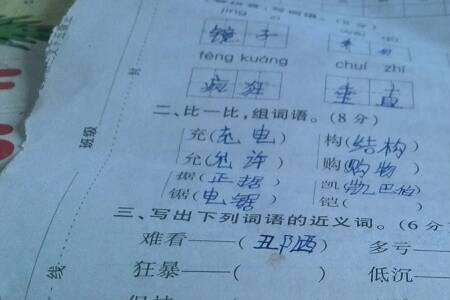 jìng zi
镜子
fēng kuáng chuí zhí
疯狂 垂直
二、比一比,组词语。(8分)
充(充电) 构(结构)
允(允许) 购(购物)
据(正据) 凯(凯巴伯)
锯(电锯) 铠( )
三、写出下列词语的近义词。(6分
难看——(丑陋) 多亏——(
狂暴——( ) 低沉——(
班级
封
线